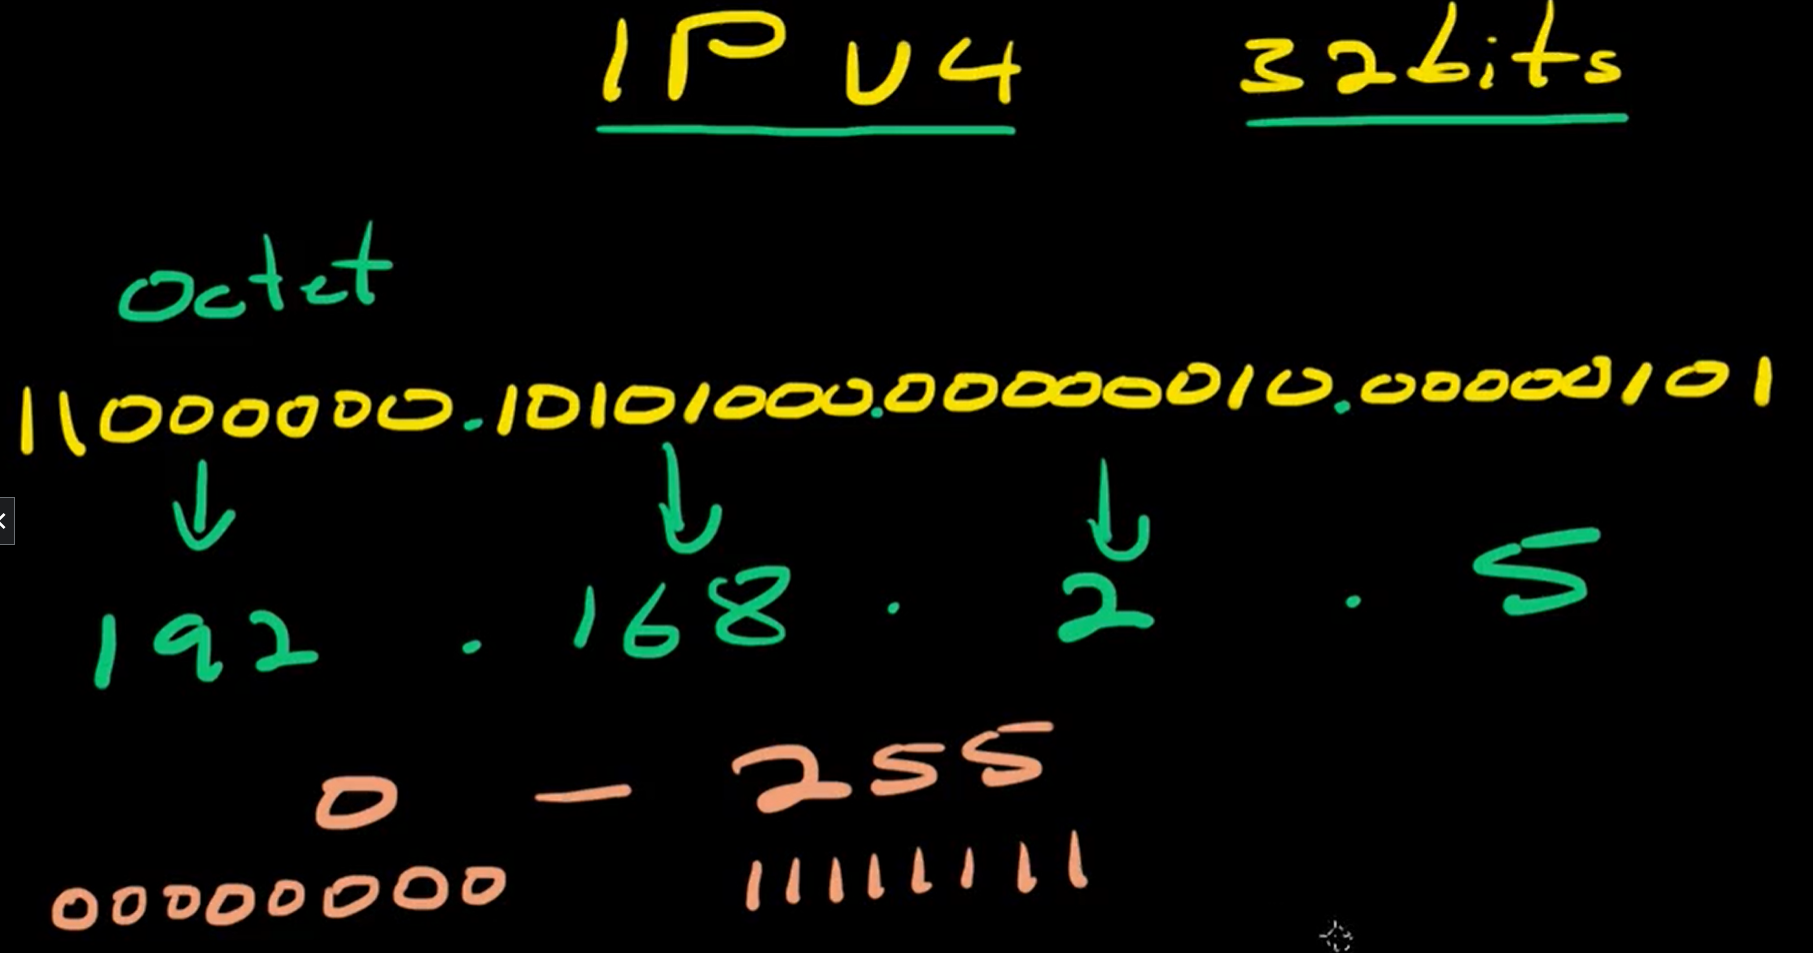 IPv4 32bits
octet
11000000.10101000.00000010.00000101
192 . 168 . 2 . 5
0 - 255
00000000 11111111